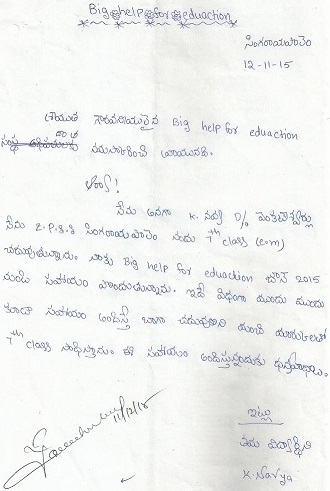 Big help for eduaction
సింగరాయపాలెం
12-11-15
గౌరవనీయులైన Big help for eduaction
నమస్కరించి వ్రాయునది.
నేను అనగా K. నవ్య D/o వెంకటేశ్వర్లు
నేను Z.P.H.S సింగరాయపాలెం నందు 7th class (E.M)
చదువుతున్నాను. నాకు Big help for eduaction జూన్ 2015
నుండి సహాయం పొందుతున్నాను. ఇదే విధంగా ముందు ముందు
కూడా సహాయం అందిస్తే బాగా చదువుకుని మంచి మార్కులతో
7th class సాధిస్తాను. ఈ సహాయం అందిస్తున్నందుకు ధన్యవాదాలు.
ఇట్లు
విద్యార్థిని
K. Navya